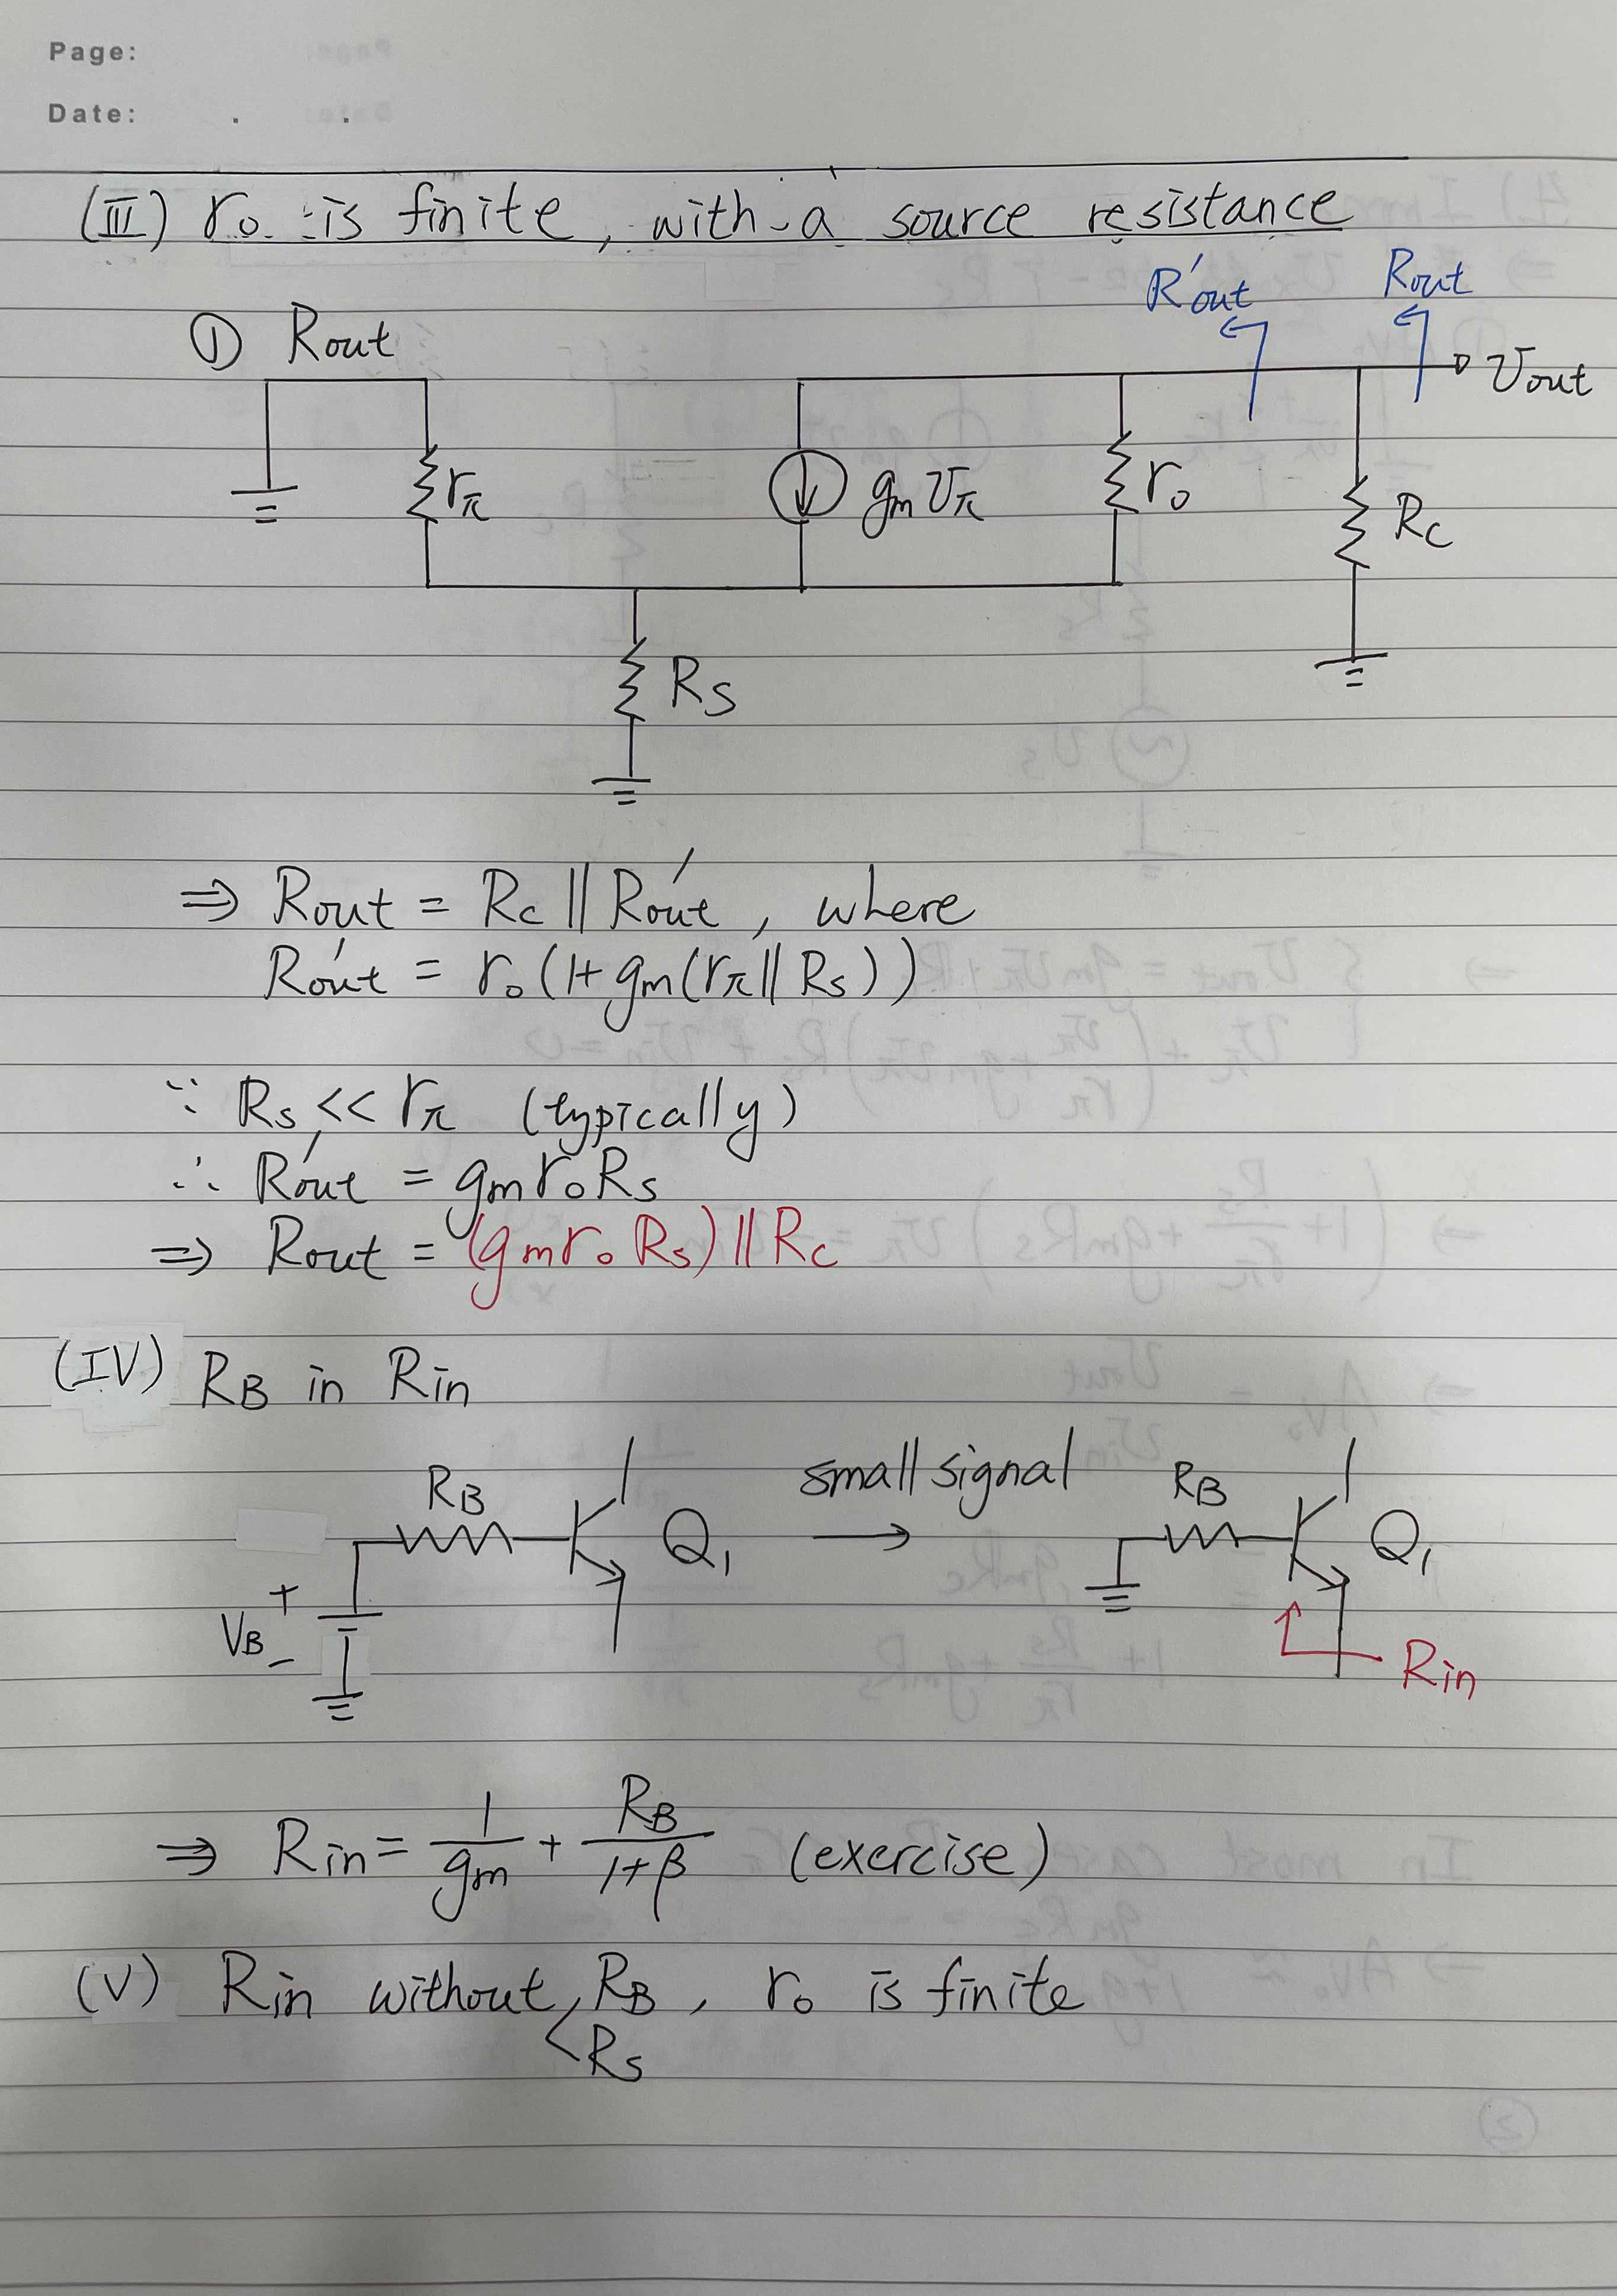 Page:
Date: . .
(III) ro is finite, with a source resistance
① Rout
R'out Rout
vout
rπ gmvπ ro RC
RS
⇒ Rout = Rc || R'out , where
R'out = ro(1+ gm(rπ || Rs))
∵ Rs << rπ (typically)
∴ R'out = gmroRs
⇒ Rout = (gmro Rs) || Rc
(IV) RB in Rin
RB Q1 small signal → RB Q1
+
VB
-
Rin
⇒ Rin = 1/gm + RB/(1+β) (exercise)
(V) Rin without RB , ro is finite
RS